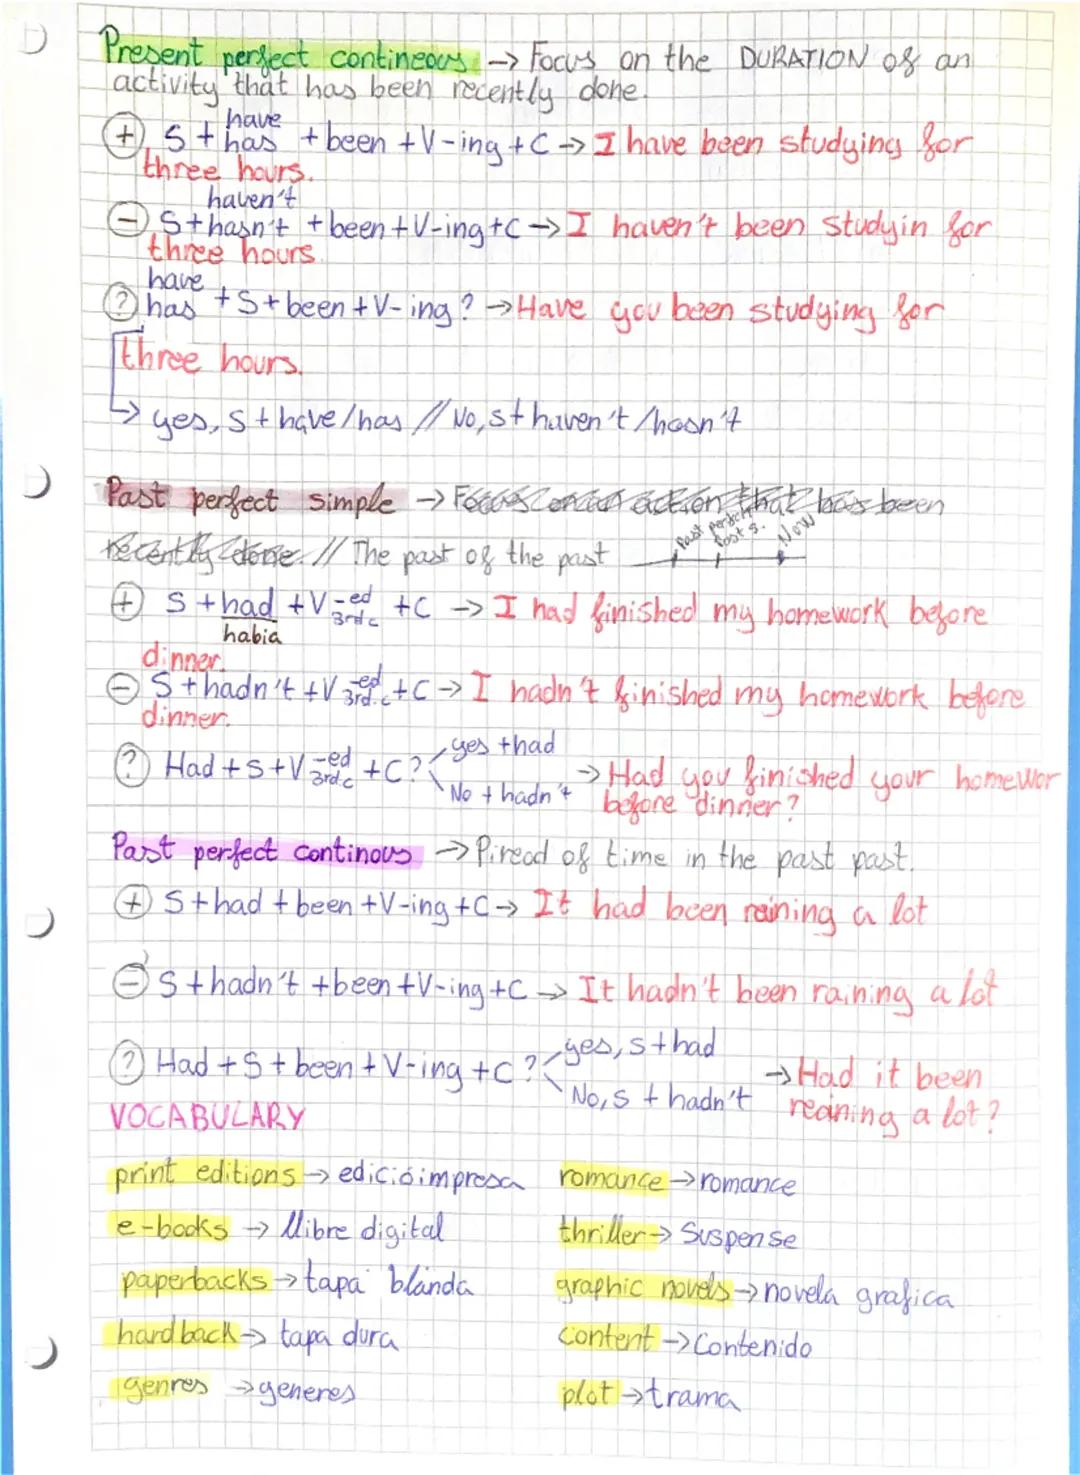 Present perfect contineous → Focus on the DURATION of an
activity that has been recently done.
have
+ S + has + been + V-ing + C → I have been studying for
three hours.
haven't
- S + hasn't + been + V-ing + C → I haven't been studyin for
three hours.
have
? has + S + been + V-ing? → Have you been studying for
three hours.
→ yes, S + have/has // No, S + haven't/hasn't
Past perfect simple → Focus on an action that has been
recently done. // The past of the past
Past perfect Past s. Now
+ S + had + V -ed 3rd c + C → I had finished my homework before
habia
dinner.
- S + hadn't + V -ed 3rd.c + C → I hadn't finished my homework before
dinner.
yes + had
? Had + S + V -ed 3rd.c + C? → Had you finished your homewor
No + hadn't before dinner?
Past perfect continous → Piread of time in the past past.
+ S + had + been + V-ing + C → It had been raining a lot
- S + hadn't + been + V-ing + C → It hadn't been raining a lot
yes, S + had
? Had + S + been + V-ing + C? → Had it been
No, S + hadn't reaining a lot?
VOCABULARY
print editions → edició impresa
e-books → llibre digital
paperbacks → tapa blanda
hardback → tapa dura
genres → generes
romance → romance
thriller → Suspense
graphic novels → novela grafica
content → Contenido
plot → trama